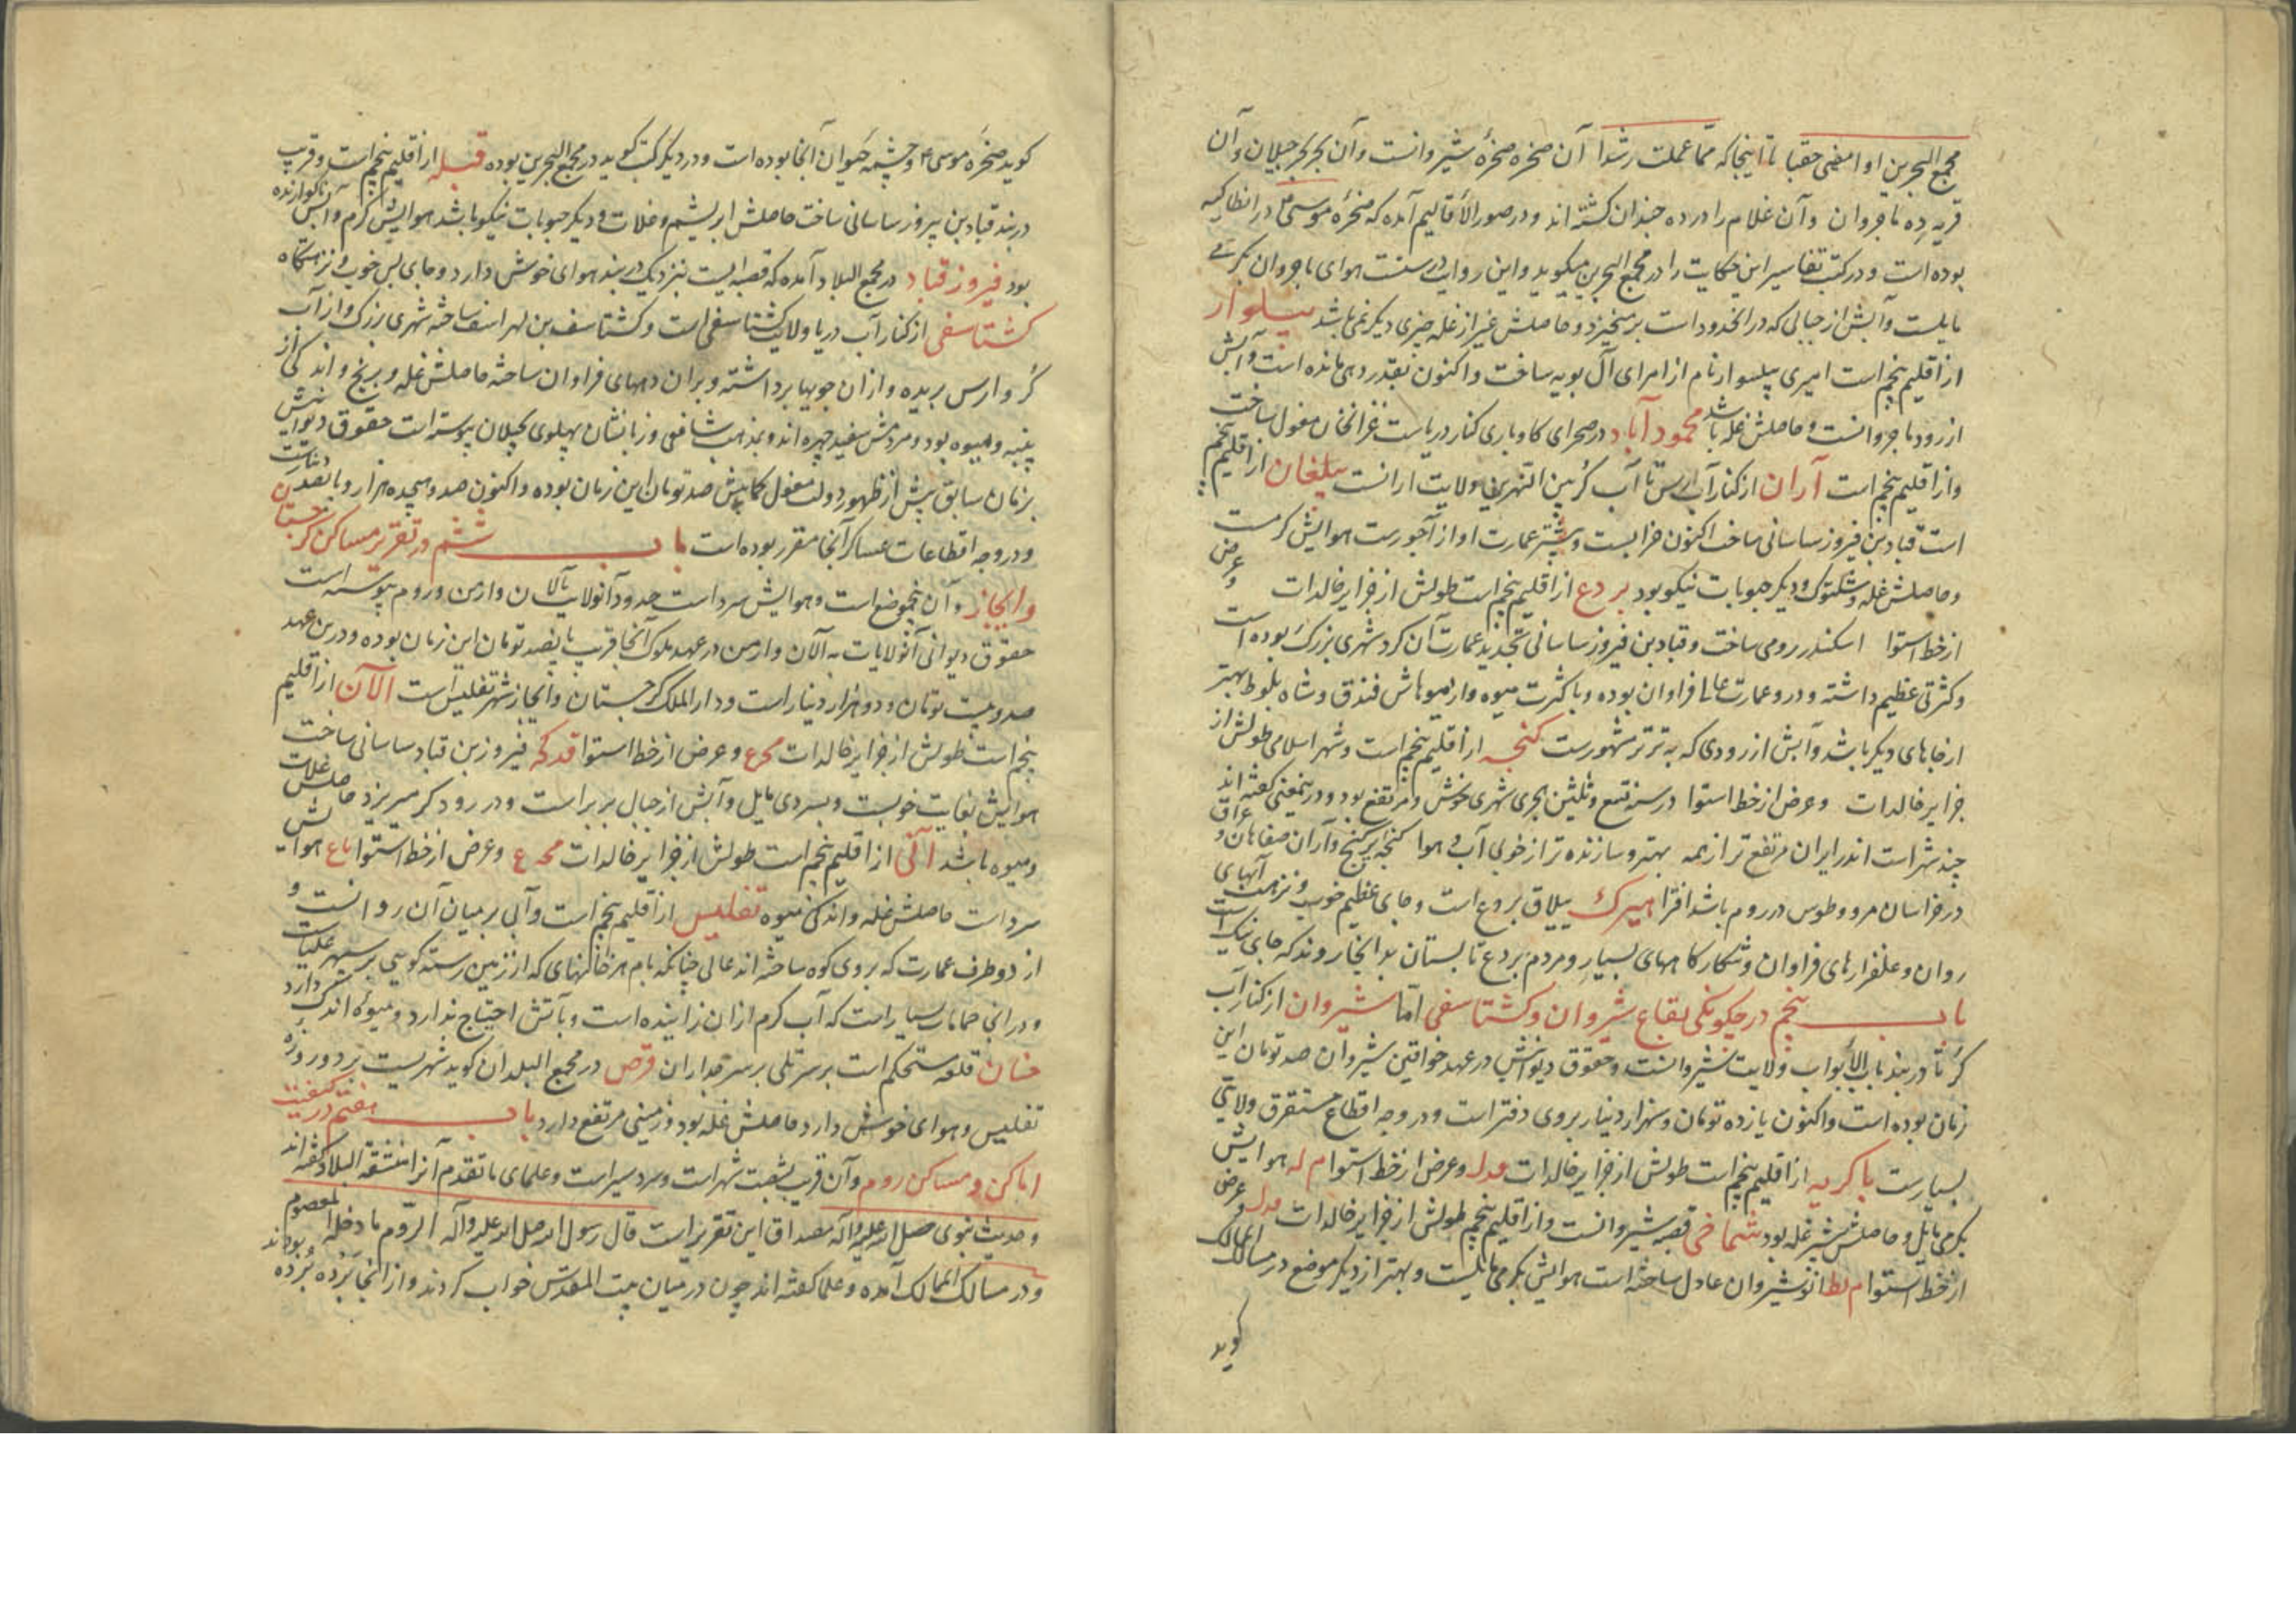 مجمع البحرین او امضی حقبا تا اینجا که مما عملت رشدا آن صخره صخرهٔ شیروانست و آن بحر بحر جیلان و آن
قریه ده باجروان و آن غلام را در ده جندان کشته اند و در صور الاقالیم آمده که صخرهٔ موسی ع در انطاکیه
بوده است و در کتب تفاسیر این حکایت را در مجمع البحرین میکوید و این روایت درستست هوای باجروان بکرمی
مایلست و آبش از جبالی که در انحدود است برمیخیزد و حاصلش غیر از غله چیزی دیکر نمی باشد پیلوار
از اقلیم پنجم است امیری پیلسوار نام از امرای آل بویه ساخت و اکنون بقدر دهی مانده است و آبش
از رود باجروانست و حاصلش غله باشد محمود آباد در صحرای کاوباری کنار دریاست غزانخان مغول ساخت
و از اقلیم پنجم است آران از کنار آب ارس تا آب کر بین النهرین ولایت ارانست بیلغان از اقلیم پنجم
است قباد بن فیروز ساسانی ساخت اکنون خرابست و بیشتر عمارت او از آجورست هوایش کرمست
و حاصلش غله و شلتوک و دیکر حبوبات نیکو بود بردع از اقلیم پنجم است طولش از جزایر خالدات و عرض
از خط استوا اسکندر رومی ساخت و قباد بن فیروز ساسانی تجدید عمارت آن کرد شهری بزرک بوده است
و کثرتی عظیم داشته و در و عمارت عالی فراوان بوده و با کثرت میوه و از میوهاش فندق و شاه بلوط بهتر
از جاهای دیکر باشد و آبش از رودی که به ترتر مشهورست کنجه از اقلیم پنجم است و شهر اسلامی طولش از
جزایر خالدات و عرض از خط استوا در سنه تسع و ثلثین هجری شهری خوش و مرتفع بود و در ینمعنی کفته اند
چند شهر است اندر ایران مرتفع تر از همه بهتر و سازنده تر از خوبی آب و هوا کنجه پر کنج و آران صفاهان و عراق
در خراسان مرو و طوس در روم باشد اقسرا هیرک ییلاق بردع است و جای عظیم خوب و نزهت آبهای
روان و علفزارهای فراوان و شکارکاههای بسیار و مردم بردع تابستان بدانجا روند که جای نیک است
باب پنجم در چکونکی بقاع شروان و کشتاسفی اما شیروان از کنار آب
کر تا دربند باب الابواب ولایت شیروانست و حقوق دیوانیش در عهد خواقین شیروان صد تومان این
زمان بوده است و اکنون یازده تومان و سه هزار دینار بر روی دفتر است و در وجه اقطاع متفرق ولایتی
بسیارست باکویه از اقلیم پنجم است طولش از جزایر خالدات فدل و عرض از خط استوا م له هوایش
بکرمی مایل و حاصلش بیشتر غله بود شماخی قصبه شیروانست و از اقلیم پنجم طولش از جزایر خالدات فدل و عرض
از خط استوا م لط انوشیروان عادل ساخته است هوایش بکرمی مایلست و بهتر از دیکر موضع در مسالک الممالک
کوید
کوید صخرهٔ موسی ع و چشمه حیوان آنجا بوده است و در دیکر کتب کوید در مجمع البحرین بوده قبله از اقلیم پنجم است و قریب
دربند قباد بن پیروز ساسانی ساخت حاصلش ابریشم و غلات و دیکر حبوبات نیکو باشد هوایش کرم و آبش ناکوارنده
بود فیروز قباد در مجمع البلاد آمده که قصبه ایست بنزدیک دربند هوای خوش دارد و جای بس خوب و نزهتکاه
کشتاسفی از کنار آب دریا ولایت کشتاسفی است و کشتاسف بن لهراسف ساخته شهری بزرک و از آب
کر و ارس بریده و از ان جویها برداشته و بران دههای فراوان ساخته حاصلش غله و برنج و اندکی از
پنبه و میوه بود و مردمش سفید چهره اند و بمذهب شافعی و زبانشان پهلوی بجیلان پیوسته است حقوق دیوانیش
بزمان سابق پیش از ظهور دولت مغول کمابیش صد تومان این زمان بوده و اکنون صد و هیجده هزار و پانصد دینارست
و در وجه اقطاعات عساکر آنجا مقرر بوده است باب ششم در تقریر مساکن کرجستان
و ابخاز و آن پنج موضع است و هوایش سرد است حدود آنولایات تا الان و ارمن و روم پیوسته است
حقوق دیوانی آنولایات به آلان و ارمن در عهد ملوک آنجا قریب پانصد تومان این زمان بوده و درین عهد
صد و بیست تومان و دو هزار دینار است و دار الملک کرجستان و ابخاز شهر تفلیس است الآن از اقلیم
پنجم است طولش از جزایر خالدات محرع و عرض از خط استوا قدکه فیروز بن قباد ساسانی ساخت
هوایش بغایت خوبست و بسردی مایل و آبش از جبال بزبر است و در رود کر میریزد حاصلش غلات
و میوه باشد آنی از اقلیم پنجم است طولش از جزایر خالدات محدع و عرض از خط استوا ماع هوایش
سرد است حاصلش غله و اندکی میوه تفلیس از اقلیم پنجم است و آبی بر میان آن روانست و
از دو طرف عمارت که بر روی کوه ساخته اند عالی چنانکه بام هر خانهای که از زمین رسته کویی بر سپهر علیاست
و در آنجا حمامات بسیار است که آب کرم از ان زاینده است و بآتش احتیاج ندارد و میوه اندک دارد
خنان قلعه مستحکم است بر سر تلی بر سرحد اران قرص در مجمع البلدان کوید شهریست بر دو روزه
تفلیس و هوای خوش دارد حاصلش غله بود و زمینی مرتفع دارد باب هفتم در کیفیت
اماکن و مساکن روم و آن قریب بشصت شهر است و سرد سیر است و علمای ما تقدم آنرا منتقه البلاد کفته اند
و حدیث نبوی صلی الله علیه و آله مصداق این تقریر است قال رسول الله صلی الله علیه و آله الروم ما دخله المعصوم
و در مسالک الممالک آمده و علما کفته اند چون در میان بیت المقدس خواب کردند و از آنجا برده برده بوده اند